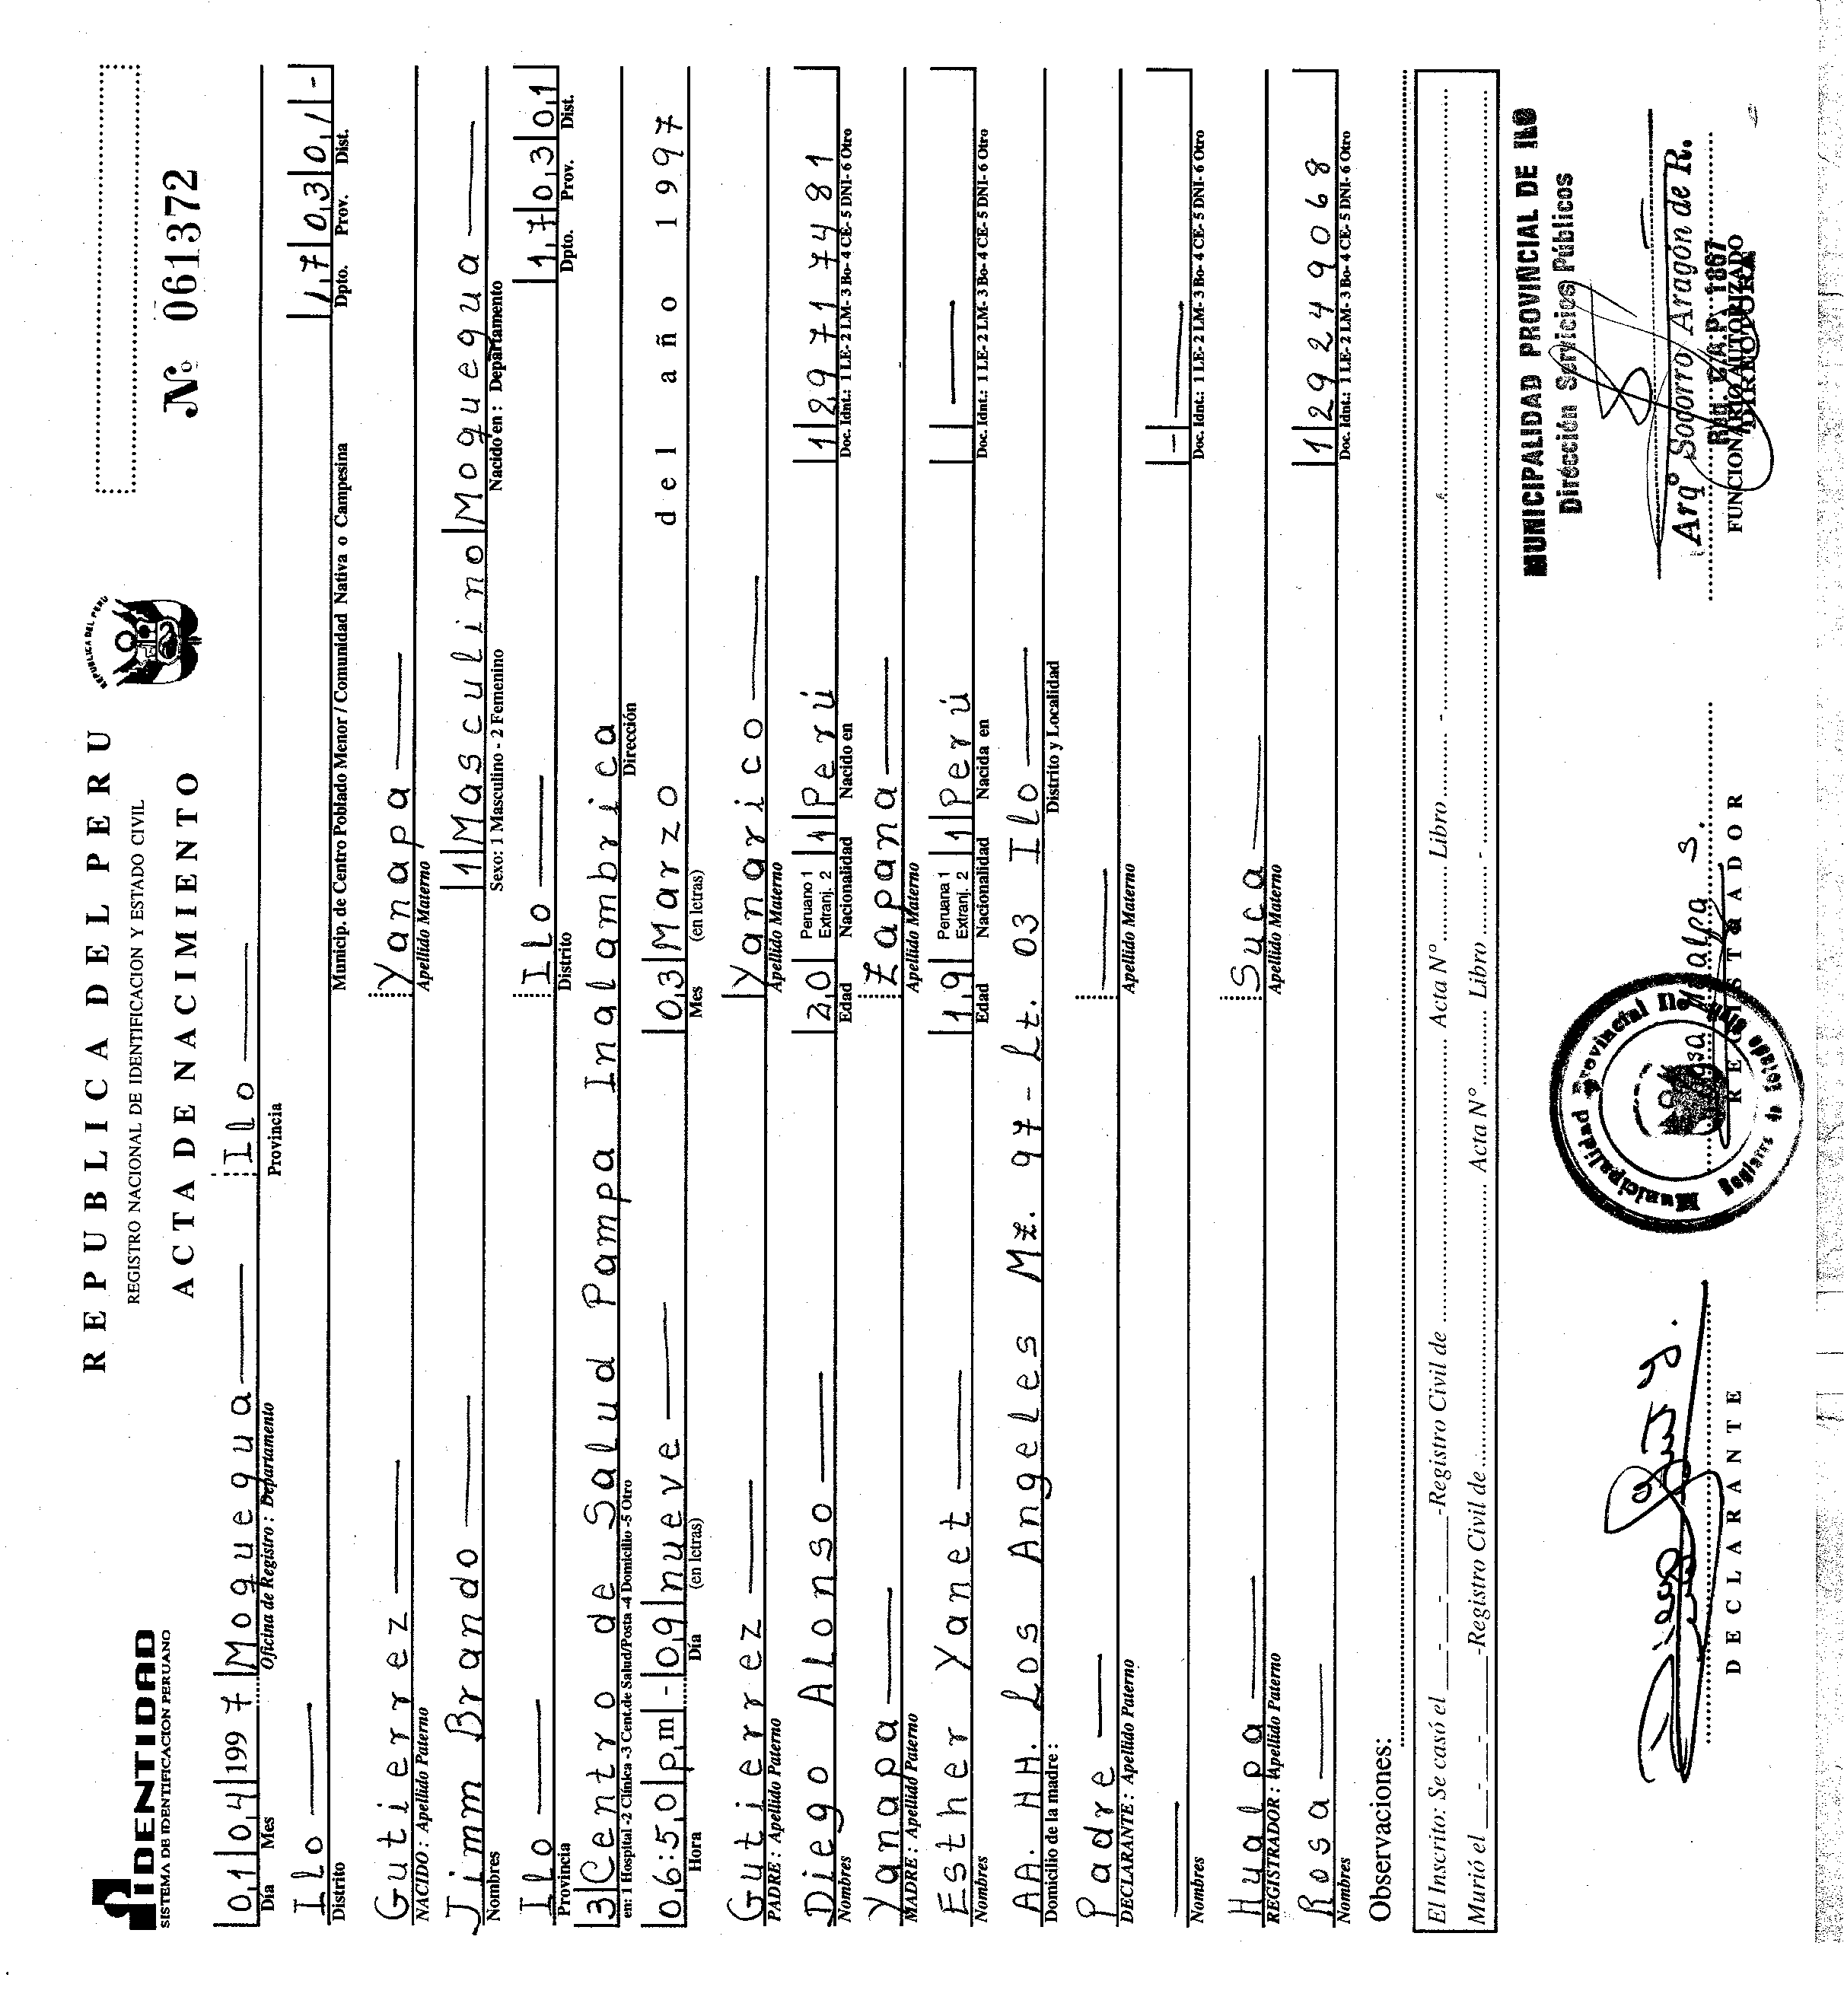 IDENTIDAD
SISTEMA DE IDENTIFICACION PERUANO
REPUBLICA DEL PERU
REGISTRO NACIONAL DE IDENTIFICACION Y ESTADO CIVIL
ACTA DE NACIMIENTO
REPUBLICA DEL PERU
Nº 061372
01 04 1997 Moquegua Ilo
Día Mes Oficina de Registro : Departamento Provincia
Ilo 17 03 01 -
Distrito Municip. de Centro Poblado Menor / Comunidad Nativa o Campesina Dpto. Prov. Dist.
Gutierrez Yanapa
NACIDO : Apellido Paterno Apellido Materno
Jimm Brando 1 Masculino Moquegua
Nombres Sexo: 1 Masculino - 2 Femenino Nacido en : Departamento
Ilo Ilo 17 03 01
Provincia Distrito Dpto. Prov. Dist.
3 Centro de Salud Pampa Inalambrica
en: 1 Hospital -2 Clínica -3 Cent.de Salud/Posta -4 Domicilio -5 Otro Dirección
06:50 pm - 09 nueve 03 Marzo del año 1997
Hora Día (en letras) Mes (en letras)
Gutierrez Yanarico
PADRE : Apellido Paterno Apellido Materno
Diego Alonso 20 Peruano 1 Extranj. 2 1 Perú 1 29717481
Nombres Edad Nacionalidad Nacido en Doc. Idnt.: 1 LE- 2 LM- 3 Bo- 4 CE- 5 DNI- 6 Otro
Yanapa Zapana
MADRE : Apellido Paterno Apellido Materno
Esther Yanet 19 Peruana 1 Extranj. 2 1 Perú
Nombres Edad Nacionalidad Nacida en Doc. Idnt.: 1 LE- 2 LM- 3 Bo- 4 CE- 5 DNI- 6 Otro
AA. HH. Los Angeles Mz. 97 - Lt. 03 Ilo
Domicilio de la madre : Distrito y Localidad
Padre
DECLARANTE : Apellido Paterno Apellido Materno
-
Nombres Doc. Idnt.: 1 LE- 2 LM- 3 Bo- 4 CE- 5 DNI- 6 Otro
Hualpa Suca
REGISTRADOR : Apellido Paterno Apellido Materno
Rosa 1 29249068
Nombres Doc. Idnt.: 1 LE- 2 LM- 3 Bo- 4 CE- 5 DNI- 6 Otro
Observaciones:
El Inscrito: Se casó el ___-___-___-Registro Civil de ........ Acta Nº ........ Libro ........ -
Murió el ___-___-___-Registro Civil de ........ Acta Nº ........ Libro ........ -
MUNICIPALIDAD PROVINCIAL DE ILO
Dirección Servicios Públicos
Arqº Socorro Aragón de R.
FUNCIONARIO AUTORIZADO
DIRECTORA
Municipalidad Provincial Ilo
Rosa Hualpa S.
REGISTRADOR
DECLARANTE